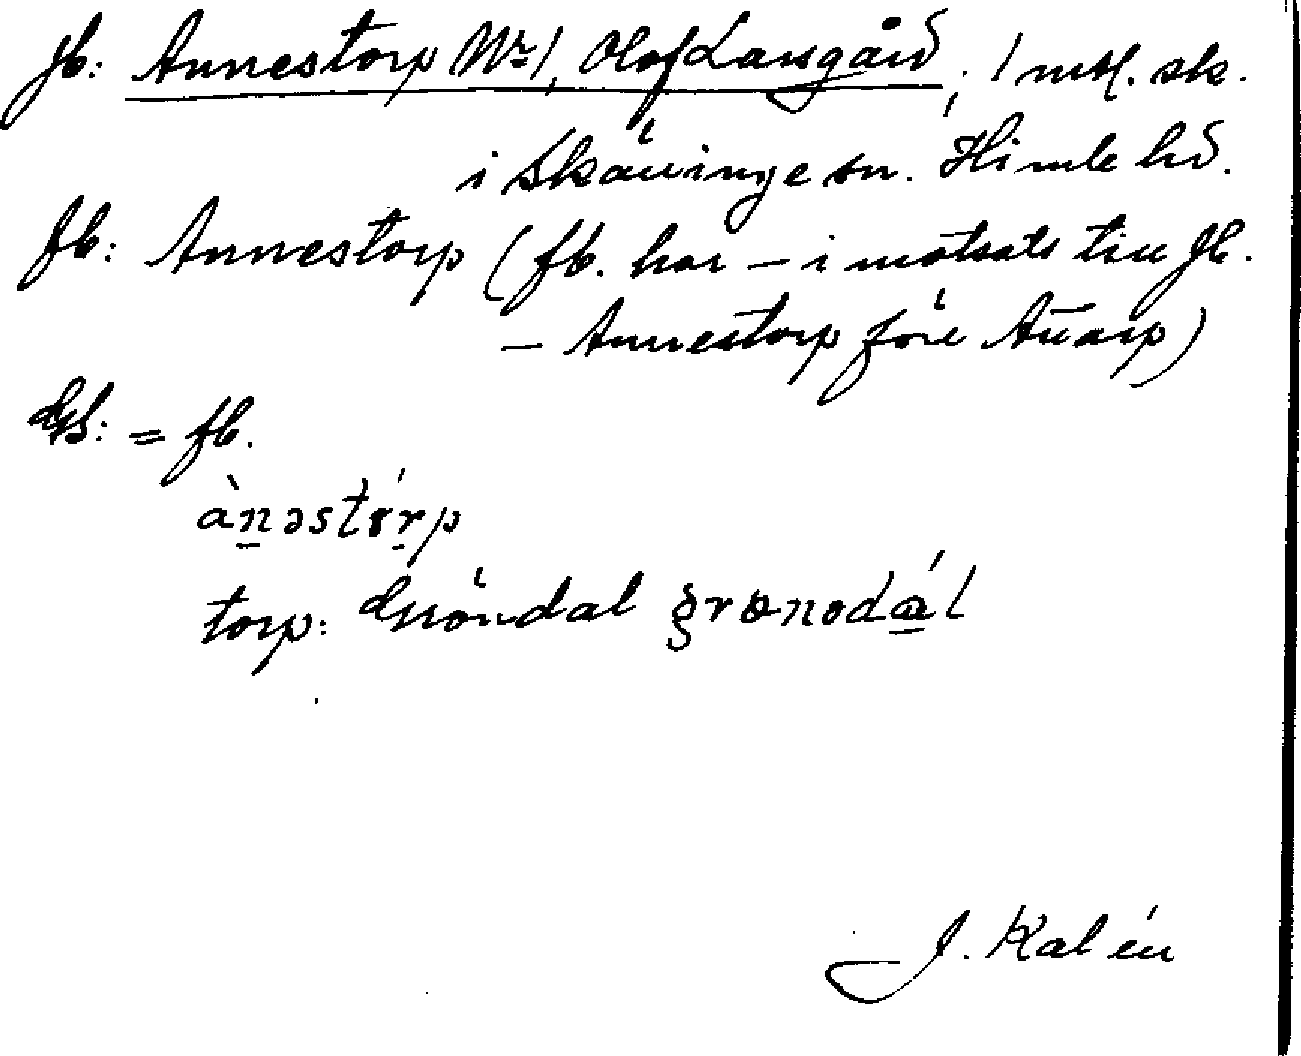 jb: Annestorp Nr 1, Olof Larsgård; 1 mtl. sk.
i Skällinge sn. Himle hd.
fb: Annestorp (fb. har – i motsats till jb.
– Annestorp före Allarp)
GS: = fb.
àn̲əstórp
torp: Gröndal
J. Kalén